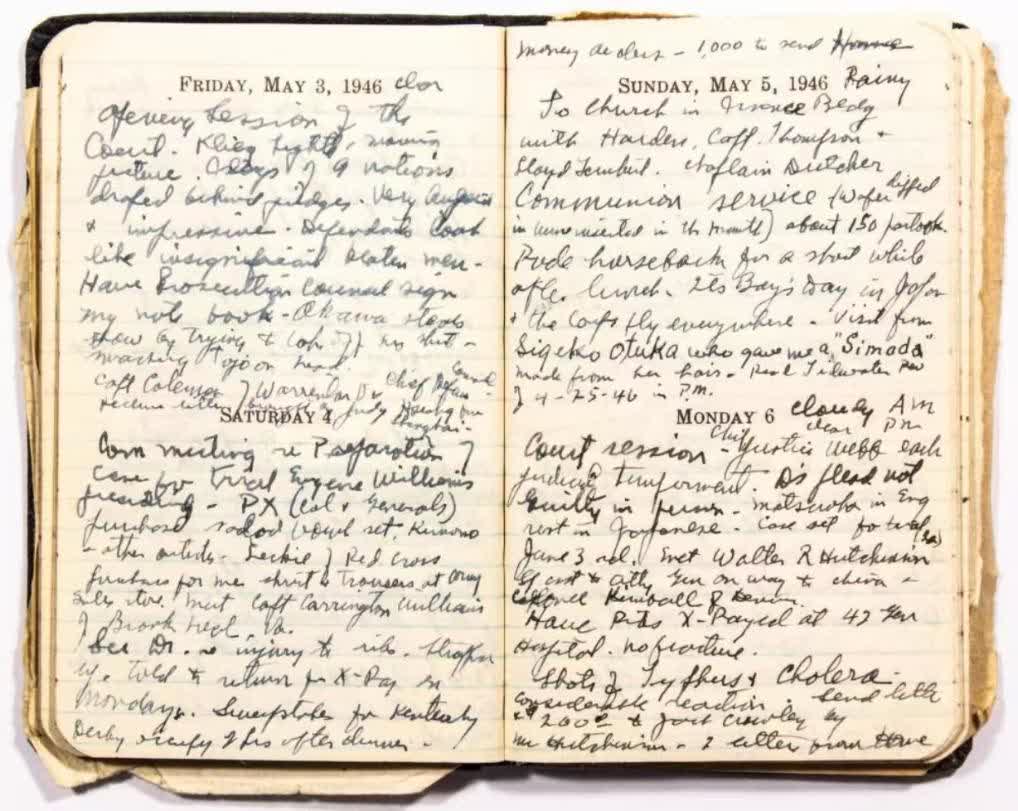 FRIDAY, MAY 3, 1946 clear
Opening Session of the
Court. Klieg lights, moving
picture. Flags of 9 nations
draped behind judges. Very august
& impressive. Defendants look
like insignificant beaten men -
Have Prosecution Counsel sign
my note book - Okawa steals
show by trying to take off his shirt -
smacking Tojo on head.
Capt Coleman of Warrenton Chief Defense Counsel -
receive letter Judy
Shanghai -
SATURDAY 4
Com meeting re Preparation of
case for trial Eugene Williams
presiding - PX (Col & Generals)
purchase salad bowl set, Kimono
& other articles - Leckie of Red Cross
purchases for me shirt & trousers at army
sales store. Met Capt Carrington Williams
of Brook Va.
See Dr. re injury to ribs. Strapped
up. Told to return for X-Ray on
Monday. Sweepstakes for Kentucky
Derby occupy 2 hrs after dinner -
money orders - 1,000 to send Home
SUNDAY, MAY 5, 1946 Rainy
To Church in Finance Bldg
with Harders, Capt. Thompson &
Lloyd Chaplain Dutcher
Communion service (wafer dipped
in wine inserted in the mouth) about 150 partook.
Rode horseback for a short while
after lunch. It's Boy's Day in Japan
& the Carps fly everywhere - Visit from
Sigeko Otuka who gave me a "Simada"
made from her hair - Read Tidewater Rev
of 4-25-46 in P.M.
MONDAY 6 cloudy AM
clear PM
Court session - Chief Justice Webb each
judicial temperament. D's plead not
guilty in person - Matsuoka in Eng
rest in Japanese - Case set for trial
June 3rd. Met Walter R Hutchinson
Asst to atty Gen on way to China -
Colonel Kimball &
Have Ribs X-Rayed at 42 Gen
Hospital. No fracture.
Shots of Typhus & Cholera -
considerable reaction - Send letter
& 200.00 to Crowley by
Mr Hutchinson - 2 letter from Home